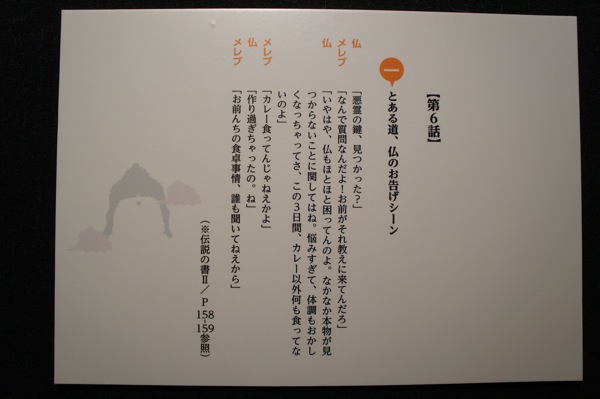 【第6話】
一 とある道、仏のお告げシーン
仏 「悪霊の鍵、見つかった？」
メレブ 「なんで質問なんだよ！お前がそれ教えに来てんだろ」
仏 「いやはや、仏もほとほと困ってんのよ。なかなか本物が見
つからないことに関してはね。悩みすぎて、体調もおかし
くなっちゃってさ、この3日間、カレー以外何も食ってな
いのよ」
メレブ 「カレー食ってんじゃねえかよ」
仏 「作り過ぎちゃったの。ね」
メレブ 「お前んちの食卓事情、誰も聞いてねえから」
（※伝説の書Ⅱ／P158-159参照）